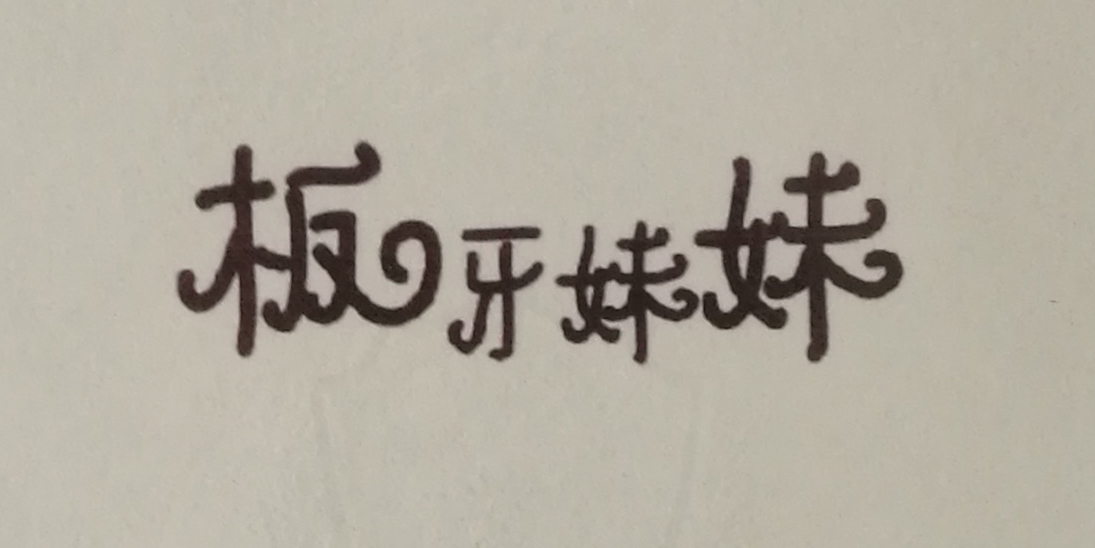 板牙妹妹